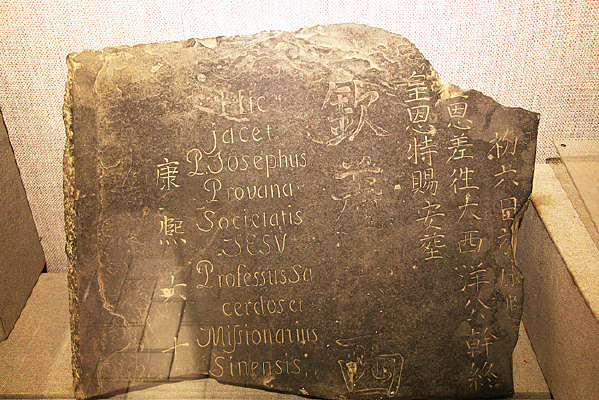 初六日
恩差往大西洋公幹終
皇恩特賜安塋
欽葬
Hic
jacet
P. Josephus
Provana
Societatis
JESV
Professus Sa
cerdos et
Miſsionarius
Sinensis
康熙六十